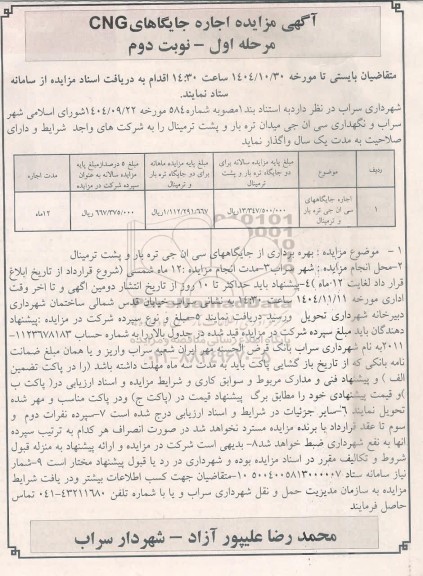 آگهی مزایده اجاره جایگاهای CNG
مرحله اول – نوبت دوم
متقاضیان بایستی تا مورخه ۱۴۰۴/۱۰/۳۰ ساعت ۱۴:۳۰ اقدام به دریافت اسناد مزایده از سامانه
ستاد نمایند.
شهرداری سراب در نظر داردبه استناد بند۱مصوبه شماره۵۸۴ مورخه ۱۴۰۴/۰۹/۲۲شورای اسلامی شهر
سراب و نگهداری سی ان جی میدان تره بار و پشت ترمینال را به شرکت های واجد شرایط و دارای
صلاحیت به مدت یک سال واگذار نماید.
ردیف موضوع مبلغ پایه مزایده سالانه برای دو جایگاه تره بار و پشت ترمینال مبلغ پایه مزایده ماهانه برای دو جایگاه تره بار و ترمینال مبلغ ۵ درصدازمبلغ پایه مزایده سالانه به عنوان سپرده شرکت در مزایده مدت اجاره
۱ اجاره جایگاههای سی ان جی تره بار و ترمینال ۱۳/۳۴۷/۵۰۰/۰۰۰ریال ۱/۱۱۲/۲۹۱/۶۶۷ریال ۶۶۷/۳۷۵/۰۰۰ ریال ۱۲ماه
۱ – موضوع مزایده : بهره برداری از جایگاههای سی ان جی تره بار و پشت ترمینال
۲-محل انجام مزایده : شهر سراب۳-مدت انجام مزایده :۱۲ ماه شمسی (شروع قرارداد از تاریخ ابلاغ
قرار داد لغایت ۱۲ماه )۴-پیشنهاد باید حداکثر تا ۱۰ روز از تاریخ انتشار دومین آگهی و تا آخر وقت
اداری مورخه ۱۴۰۴/۱۱/۱۱ ساعت ۱۴:۳۰ به نشانی سراب خیابان قدس شمالی ساختمان شهرداری
دبیرخانه شهرداری تحویل ورسید دریافت نمایند ۵-مبلغ و نوع سپرده شرکت در مزایده :پیشنهاد
دهندگان باید مبلغ سپرده شرکت در مزایده قید شده در جدول بالارا به شماره حساب ۱۱۲۳۶۷۸۱۸۳-
۲۰۱۱به نام شهرداری سراب بانک قرض الحسنه مهر ایران شعبه سراب واریز و یا همان مبلغ ضمانت
نامه بانکی که از تاریخ باز گشایی پاکت باید به مدت سه ماه مهلت داشته باشد (را در پاکت تضمین
الف ) و پیشنهاد فنی و مدارک مربوط و سوابق کاری و شرایط مزایده و اسناد ارزیابی در( پاکت ب
)و قیمت پیشنهادی خود را مطابق برگ پیشنهاد قیمت در (پاکت ج) ودر پاکت مناسب و مهر شده
تحویل نمایند ۶-سایر جزئیات در شرایط و اسناد ارزیابی درج شده است ۷-سپرده نفرات دوم و
سوم تا عقد قرارداد با برنده مزایده مسترد نخواهد شد در صورت انصراف هر کدام به ترتیب سپرده
انها به نفع شهرداری ضبط خواهد شد۸- بدیهی است شرکت در مزایده و ارائه پیشنهاد به منزله قبول
شروط و تکالیف مقرر در اسناد مزایده بوده و شهرداری در رد یا قبول پیشنهاد مختار است ۹-شمار
نیاز سامانه ستاد ۵۰۰۴۰۰۵۸۱۳۰۰۰۰۰۷ ۱۰-متقاضیان جهت کسب اطلاعات بیشتر ودر یافت شرایط
مزایده به سازمان مدیریت حمل و نقل شهرداری سراب و یا با شماره تلفن ۴۳۲۱۱۶۸۰-۰۴۱ تماس
حاصل فرمایند
محمد رضا علیپور آزاد – شهردار سراب